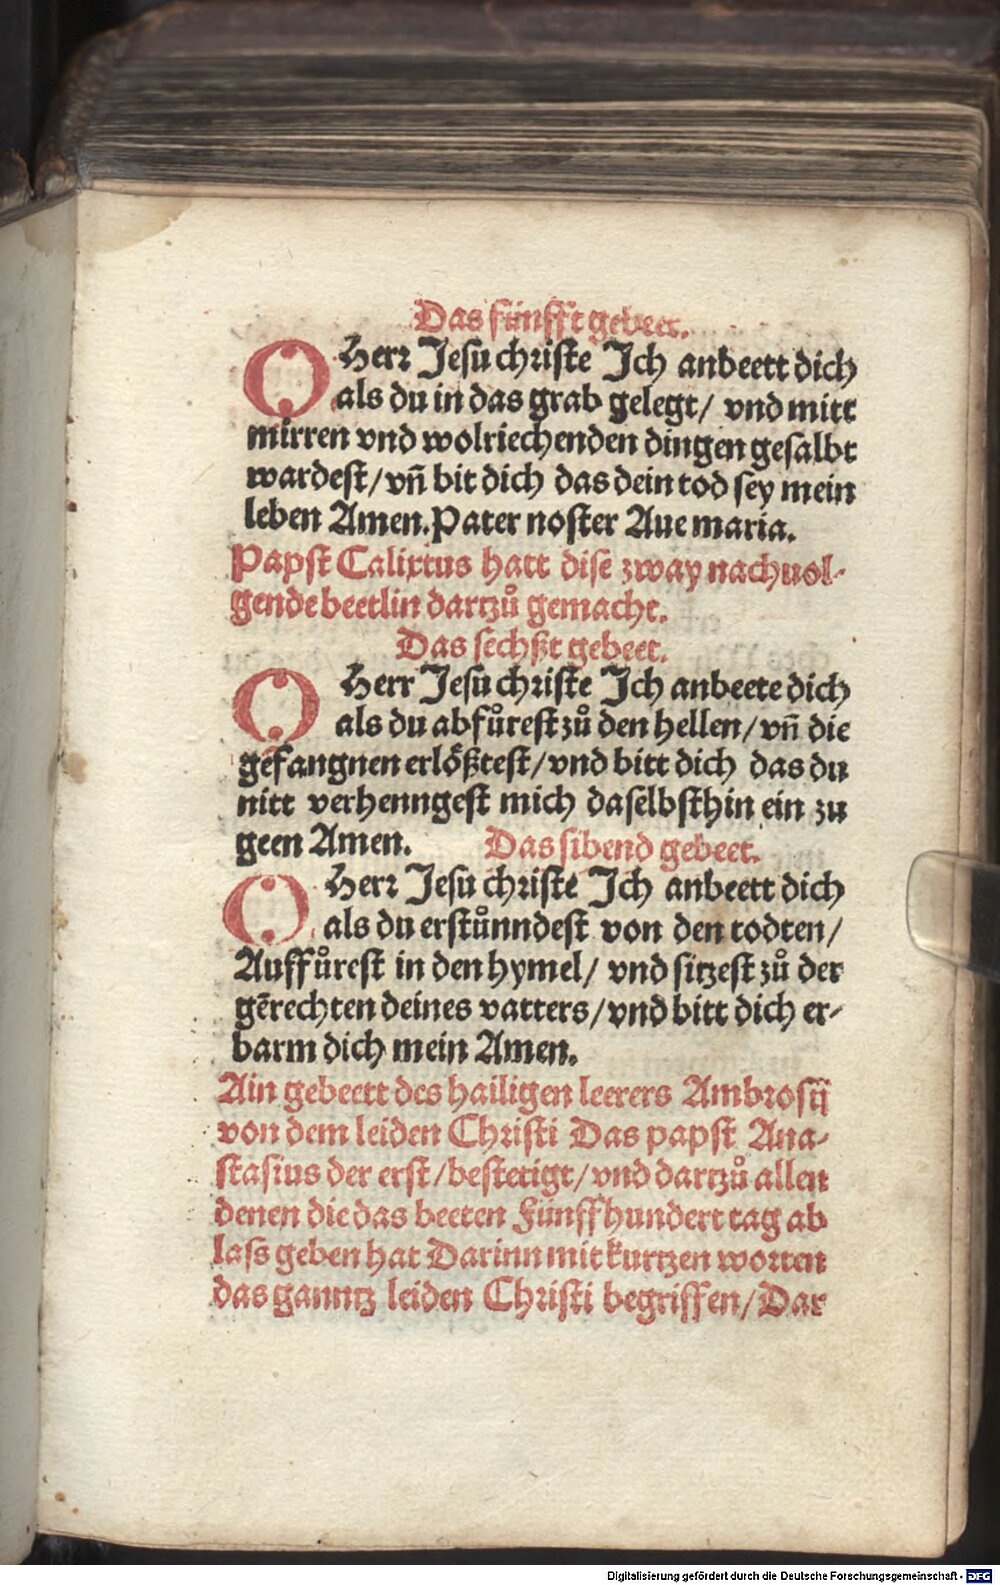 Das fünfft gebeet.
O Herr Jesu christe Ich anbeett dich
als du in das grab gelegt/ vnd mitt
mirren vnd wolriechenden dingen gesalbt
wardest/ vn̄ bit dich das dein tod sey mein
leben Amen. Pater noster Aue maria.
Papst Calixtus hatt dise zway nachuol-
gende beetlin dartzů gemacht.
Das sechßt gebeet.
O Herr Jesu christe Ich anbeete dich
als du abfůrest zů den hellen/ vn̄ die
gefangnen erlößtest/ vnd bitt dich das du
nitt verhenngest mich daselbsthin ein zu
geen Amen. Das sibend gebeet.
O Herr Jesu christe Ich anbeett dich
als du erstůnndest von den todten/
Auffůrest in den hymel/ vnd sitzest zů der
gerechten deines vatters/ vnd bitt dich er-
barm dich mein Amen.
Ain gebeett des hailigen leerers Ambrosij
von dem leiden Christi Das papst Ana-
stasius der erst/ bestetigt/ vnd dartzů allen
denen die das beeten Fünffhundert tag ab
lass geben hat Darinn mit kurtzen worten
das ganntz leiden Christi begriffen/ Dar
Digitalisierung gefördert durch die Deutsche Forschungsgemeinschaft - DFG